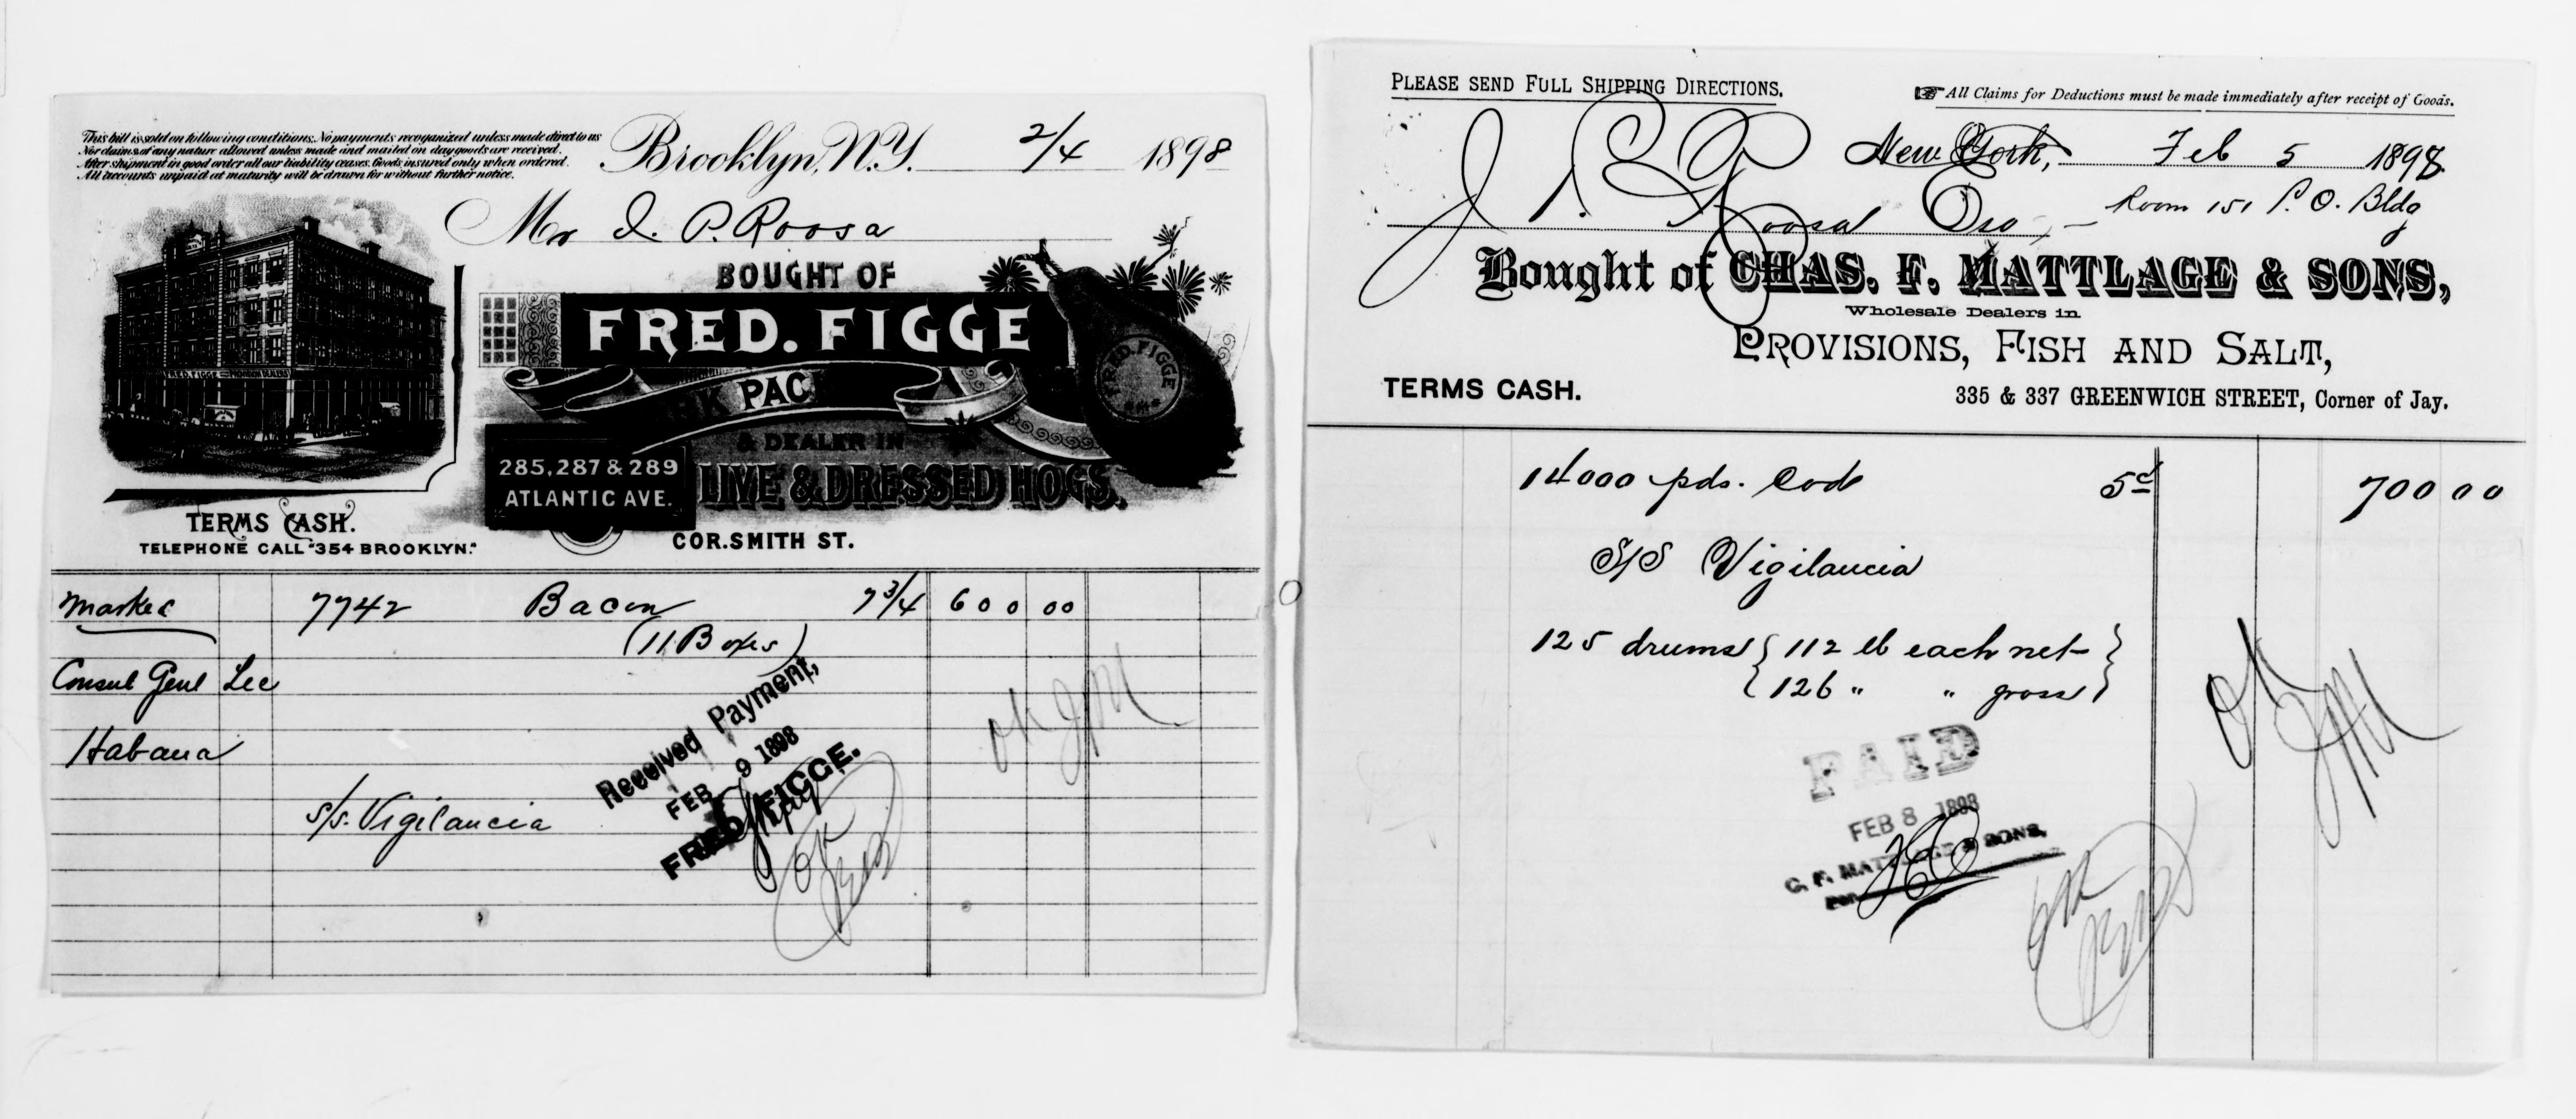 This bill is sold on following conditions. No payments recoganized unless made direct to us
Nor claims of any nature allowed unless made and mailed on day goods are received.
After shipment in good order all our liability ceases. Goods insured only when ordered.
All accounts unpaid at maturity will be drawn for without further notice.
Brooklyn, N.Y. 2/4 1898
Mr I. P. Roosa
BOUGHT OF
FRED. FIGGE
FRED. FIGGE
PAC
& DEALER IN
LIVE & DRESSED HOGS.
285, 287 & 289
ATLANTIC AVE.
COR. SMITH ST.
FRED. FIGGE PROVISION DEALER
TERMS CASH.
TELEPHONE CALL "354 BROOKLYN."
Marked 7742 Bacon 7 3/4 600 00
(11 Boxes)
Consul Genl Lee
Habana
s/s. Vigilancia
Received Payment,
FEB 9 1898
FRED. FIGGE.
OK JPM
OK
PLEASE SEND FULL SHIPPING DIRECTIONS.
All Claims for Deductions must be made immediately after receipt of Goods.
New York, Feb 5 1898
J. P. Roosa Esq Room 151 P. O. Bldg
Bought of CHAS. F. MATTLAGE & SONS,
Wholesale Dealers in
PROVISIONS, FISH AND SALT,
TERMS CASH.
335 & 337 GREENWICH STREET, Corner of Jay.
14000 pds. Cod 5c 700 00
S/S Vigilancia
125 drums { 112 lb each net }
{ 126 " " gross }
PAID
FEB 8 1898
C. F. MATTLAGE & SONS,
Per
OK JPM
OK